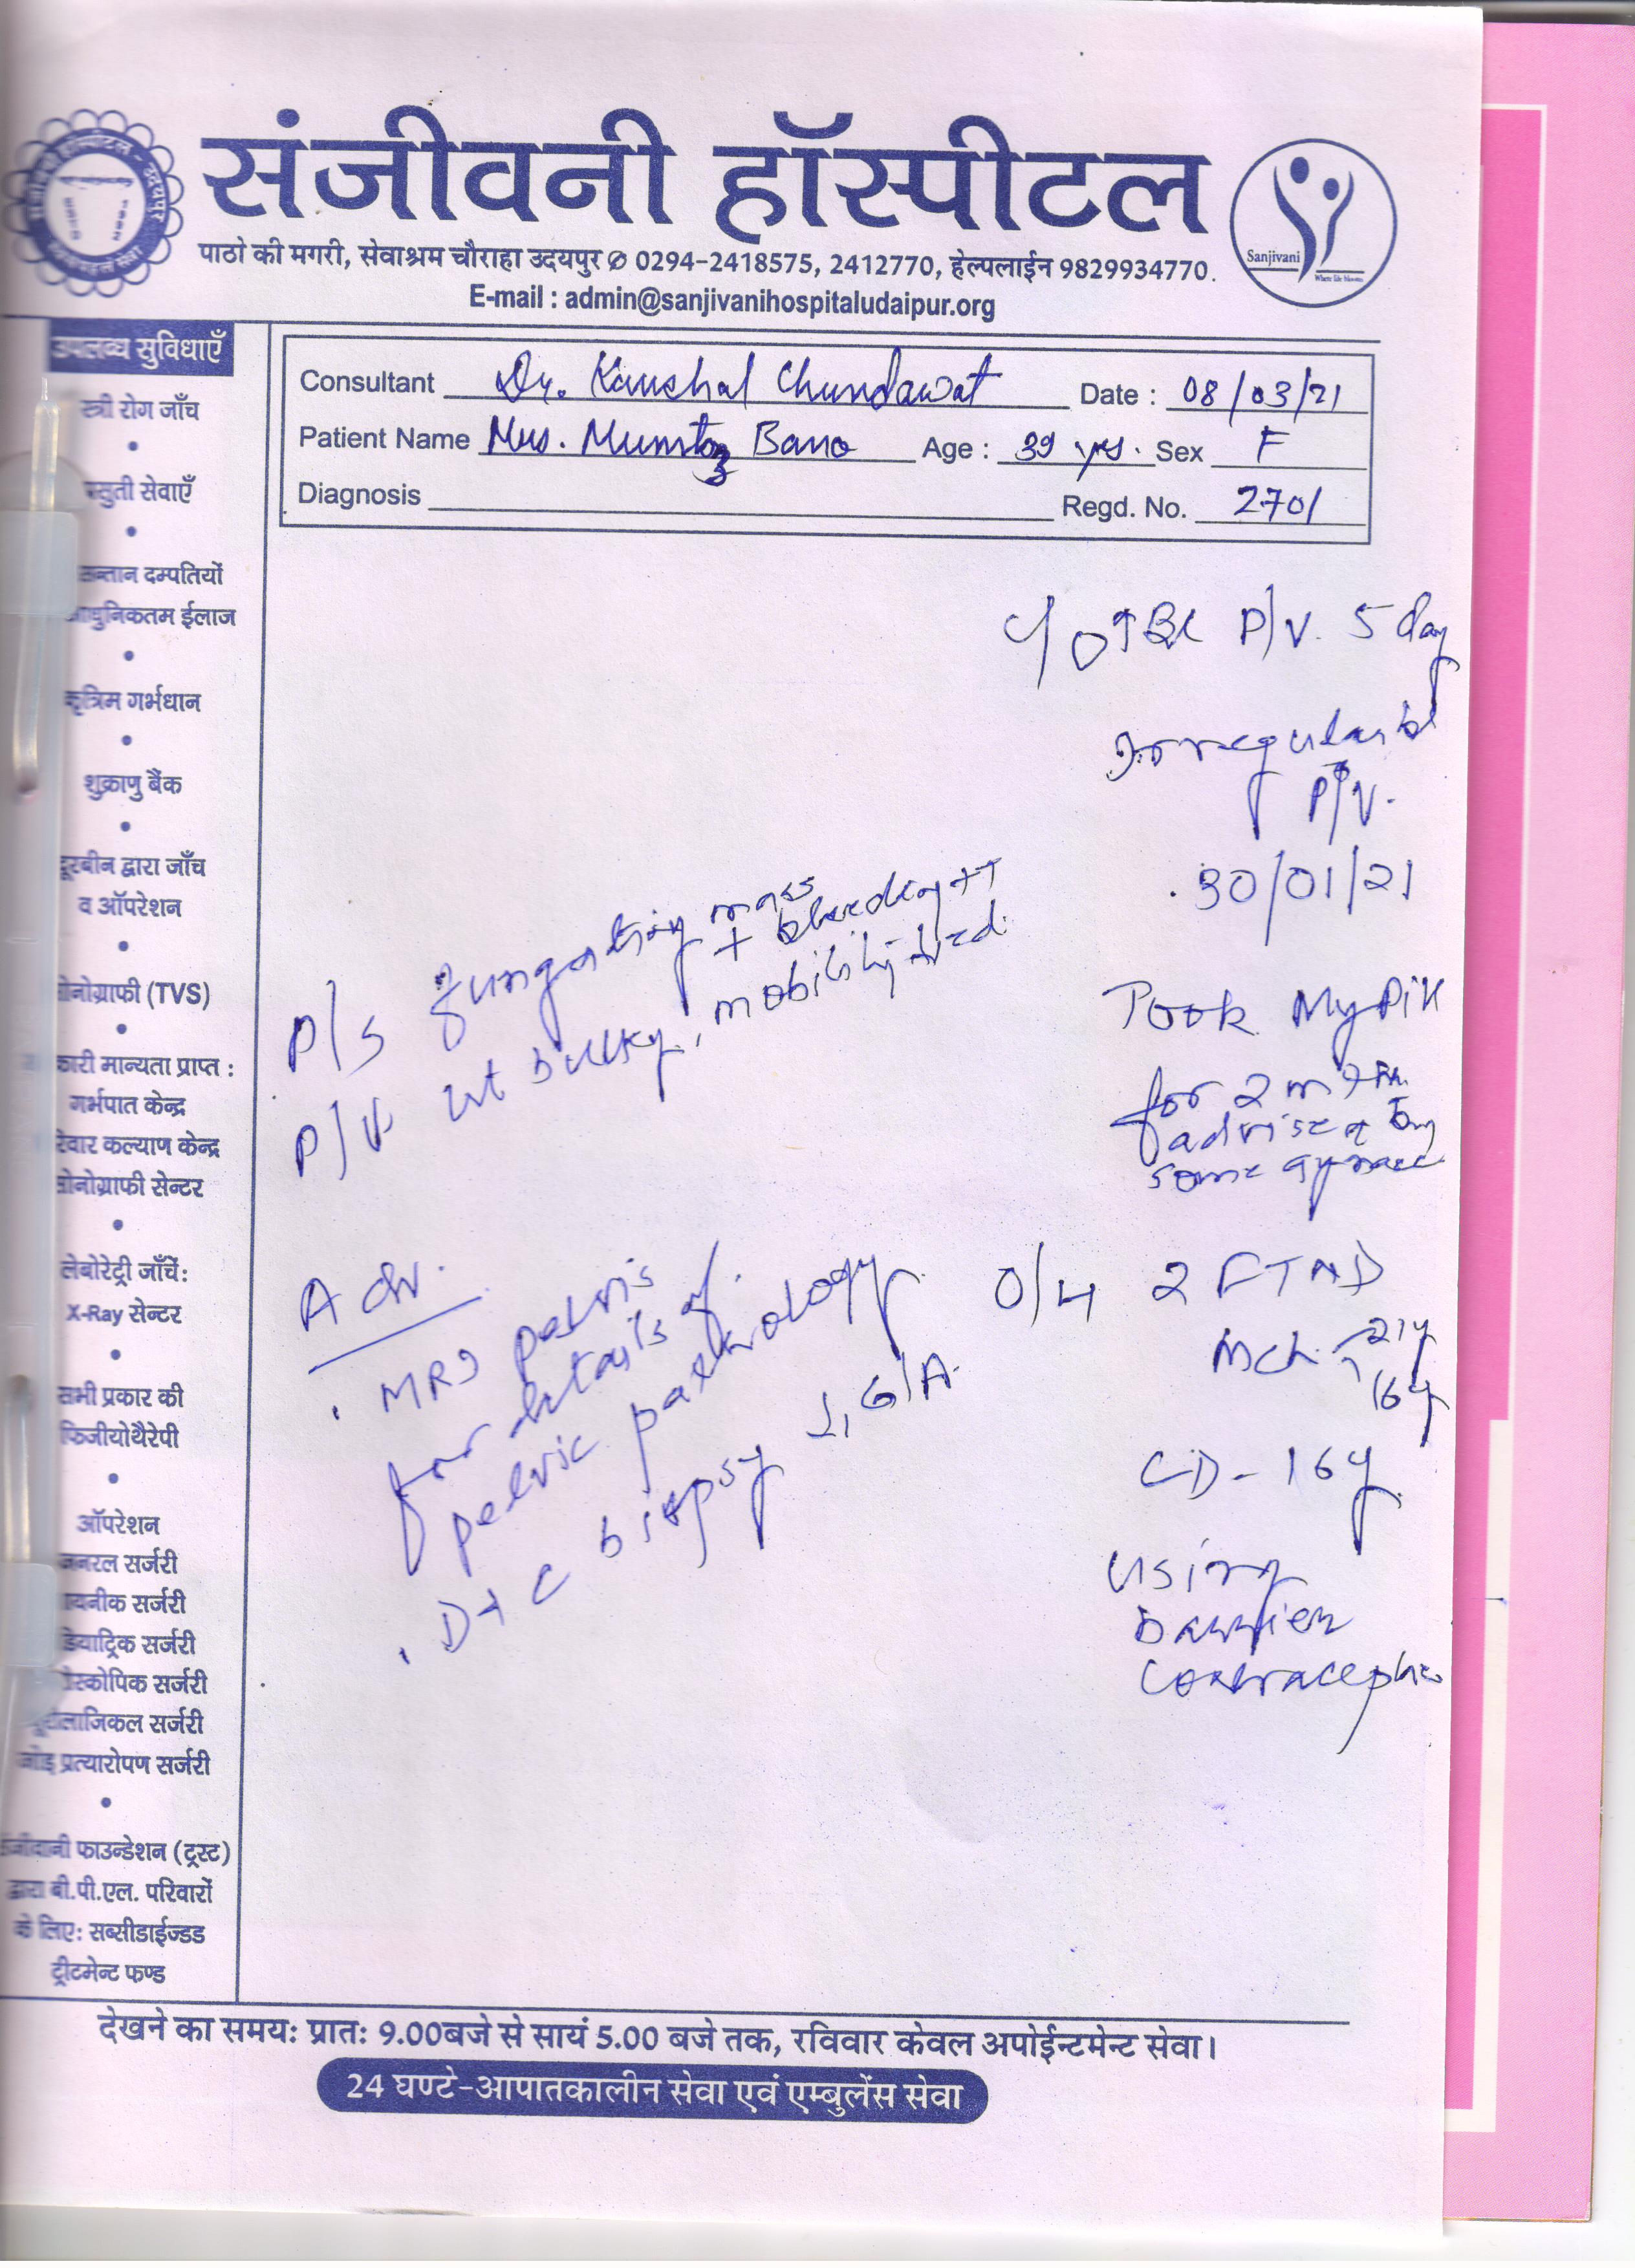 संजीवनी हॉस्पीटल
पाठो की मगरी, सेवाश्रम चौराहा उदयपुर ✆ 0294-2418575, 2412770, हेल्पलाईन 9829934770.
E-mail : admin@sanjivanihospitaludaipur.org
Sanjivani
उपलब्ध सुविधाएँ
स्त्री रोग जाँच
प्रसुती सेवाएँ
सन्तान दम्पतियों
आधुनिकतम ईलाज
कृत्रिम गर्भधान
शुक्राणु बैंक
दूरबीन द्वारा जाँच
व ऑपरेशन
सोनोग्राफी (TVS)
मान्यता प्राप्त :
गर्भपात केन्द्र
कल्याण केन्द्र
सोनोग्राफी सेन्टर
लेबोरेट्री जाँचें:
X-Ray सेन्टर
सभी प्रकार की
फिजीयोथैरेपी
ऑपरेशन
जनरल सर्जरी
सर्जरी
सर्जरी
सर्जरी
सर्जरी
प्रत्यारोपण सर्जरी
फाउन्डेशन (ट्रस्ट)
द्वारा बी.पी.एल. परिवारों
के लिए: सब्सीडाईज्डड
ट्रीटमेन्ट फण्ड
Consultant Dr. Kaushal Chundawat Date : 08/03/21
Patient Name Mrs. Mumtaz Bano Age : 39 yrs. Sex F
Diagnosis Regd. No. 2701
C/O ↑ P/V. 5 day
Irregular bl
P/V.
30/01/21
Took My Pill
for 2 mth
advised by
some gynaec
O/H 2 FTND
Mch 21y
16y
LD - 16y
using
barrier
contraceptive
P/S fungating mass
+ bleeding ++
P/V ut bulky, mobility red.
Adv.
. MRI pelvis
for details of
pelvic pathology
. D+C biopsy G/A.
देखने का समय: प्रातः 9.00बजे से सायं 5.00 बजे तक, रविवार केवल अपोईन्टमेन्ट सेवा।
24 घण्टे-आपातकालीन सेवा एवं एम्बुलेंस सेवा